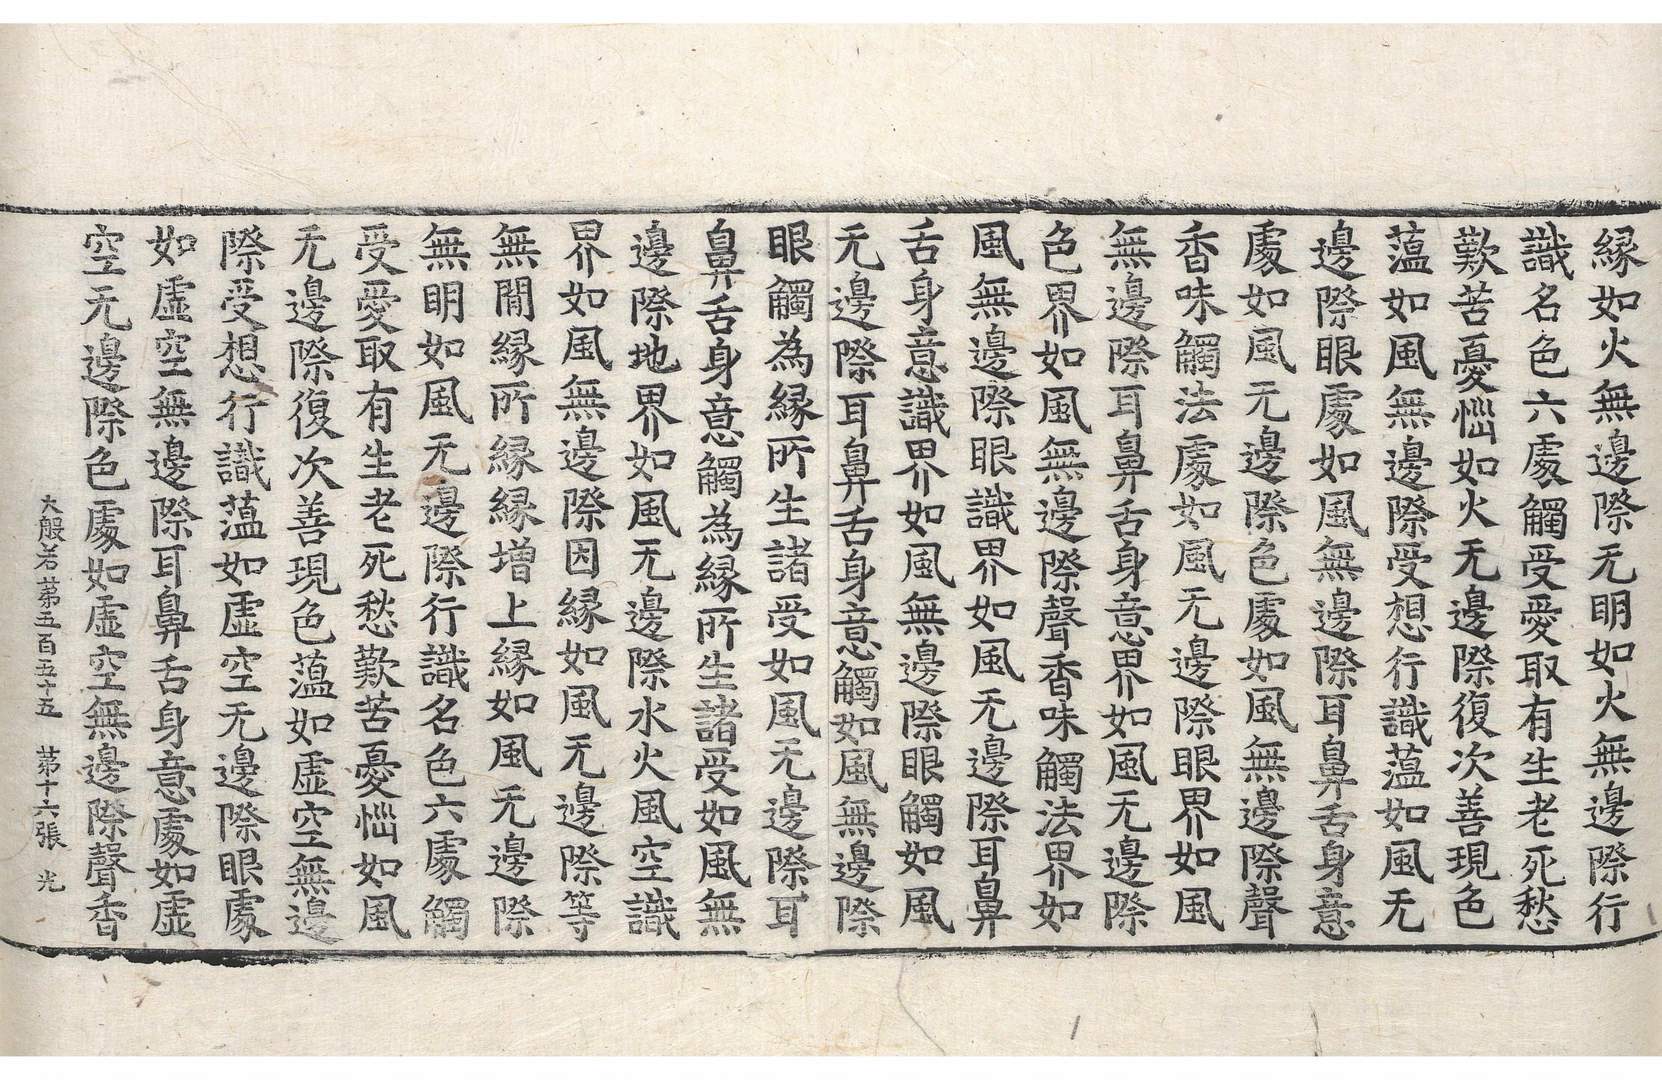 縁如火無邊際无明如火無邊際行
識名色六處觸受愛取有生老死愁
歎苦憂惱如火无邊際復次善現色
薀如風無邊際受想行識薀如風无
邊際眼處如風無邊際耳鼻舌身意
處如風无邊際色處如風無邊際聲
香味觸法處如風无邊際眼界如風
無邊際耳鼻舌身意界如風无邊際
色界如風無邊際聲香味觸法界如
風無邊際眼識界如風无邊際耳鼻
舌身意識界如風無邊際眼觸如風
无邊際耳鼻舌身意觸如風無邊際
眼觸為縁所生諸受如風无邊際耳
鼻舌身意觸為縁所生諸受如風無
邊際地界如風无邊際水火風空識
界如風無邊際因縁如風无邊際等
無間縁所縁縁增上縁如風无邊際
無明如風无邊際行識名色六處觸
受愛取有生老死愁歎苦憂惱如風
无邊際復次善現色薀如虛空無邊
際受想行識薀如虛空无邊際眼處
如虛空無邊際耳鼻舌身意處如虛
空无邊際色處如虛空無邊際聲香
大般若苐五百五十五 苐十六張 光